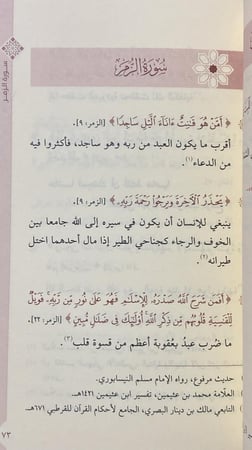 سورة الزمر
سُورَةُ الزُّمَرِ
﴿ أَمَّنْ هُوَ قَٰنِتٌ ءَانَآءَ ٱلَّيْلِ سَاجِدًا ﴾ [الزمر: ٩].
أقرب ما يكون العبد من ربه وهو ساجد، فأكثروا فيه
من الدعاء(١).
﴿ يَحْذَرُ ٱلْءَاخِرَةَ وَيَرْجُوا۟ رَحْمَةَ رَبِّهِۦ ﴾ [الزمر: ٩].
ينبغي للإنسان أن يكون في سيره إلى الله جامعا بين
الخوف والرجاء كجناحي الطير إذا مال أحدهما اختل
طيرانه(٢).
﴿ أَفَمَن شَرَحَ ٱللَّهُ صَدْرَهُۥ لِلْإِسْلَٰمِ فَهُوَ عَلَىٰ نُورٍ مِّن رَّبِّهِۦ فَوَيْلٌ
لِّلْقَٰسِيَةِ قُلُوبُهُم مِّن ذِكْرِ ٱللَّهِ أُو۟لَٰٓئِكَ فِى ضَلَٰلٍ مُّبِينٍ ﴾ [الزمر: ٢٢].
ما ضُرب عبدٌ بعُقوبة أعظم من قسوة قلب(٣).
(١) حديث مرفوع، رواه الإمام مسلم النيسابوري.
(٢) العلّامة محمد بن عثيمين، تفسير ابن عثيمين ١٤٢١هـ.
(٣) التابعي مالك بن دينار البصري، الجامع لأحكام القرآن للقرطبي ٦٧١هـ.
٧٣